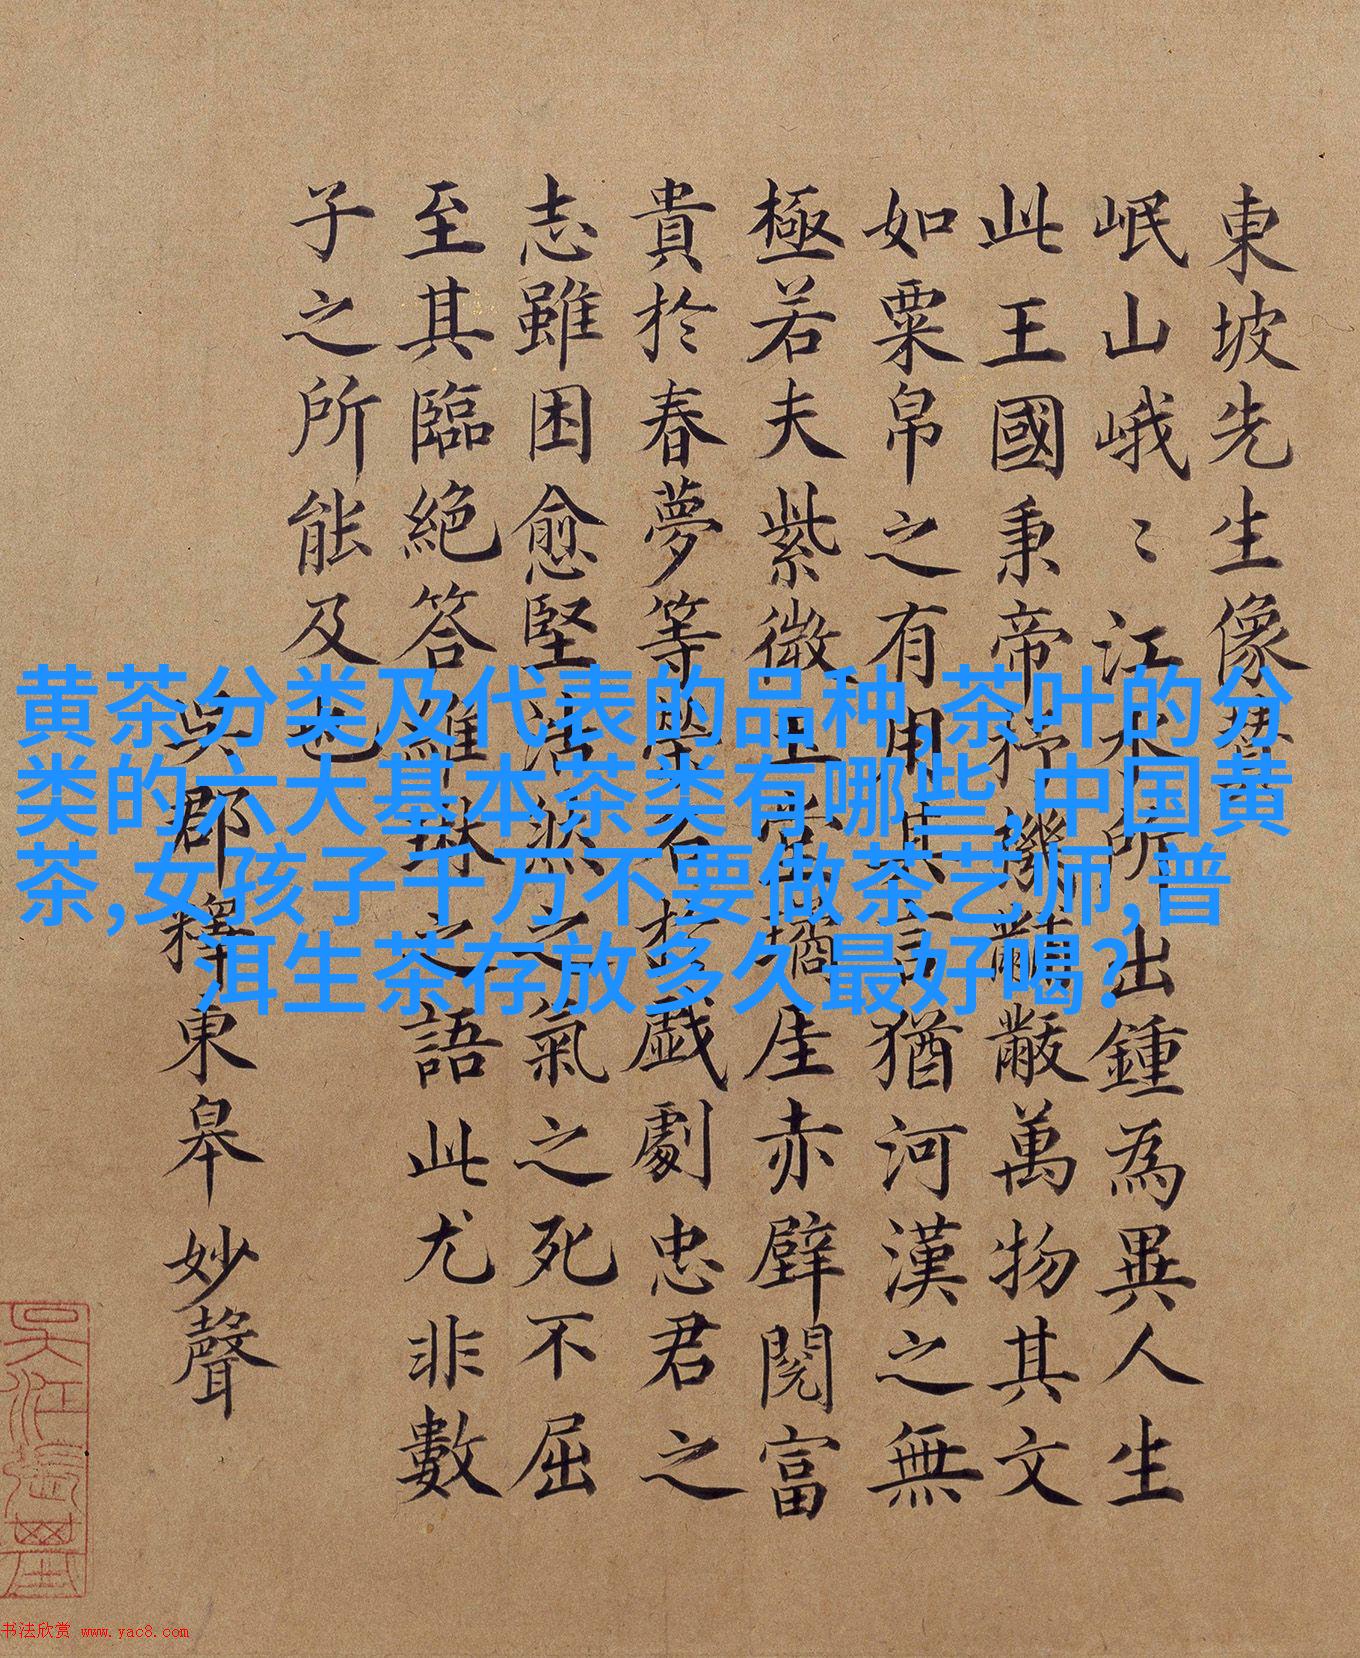 東坡先生像
岷山峨〻江水所出鍾為異人生
此王國秉帝杼機黼黻萬物其文
如粟帛之有用其言猶河漢之無
極若夫紫微玉堂瓊崖赤壁閱富
貴於春夢等榮名於戯劇忠君之
志雖困愈堅浩然之氣之死不屈
至其臨絕答維琳之語此尤非數
子之所能及也
吳郡釋東皋妙聲
黄茶分类及代表的品种,茶叶的分
类的六大基本茶类有哪些,中国黄
茶,女孩子千万不要做茶艺师,普
洱生茶存放多久最好喝?
书法欣赏 www.yac8.com